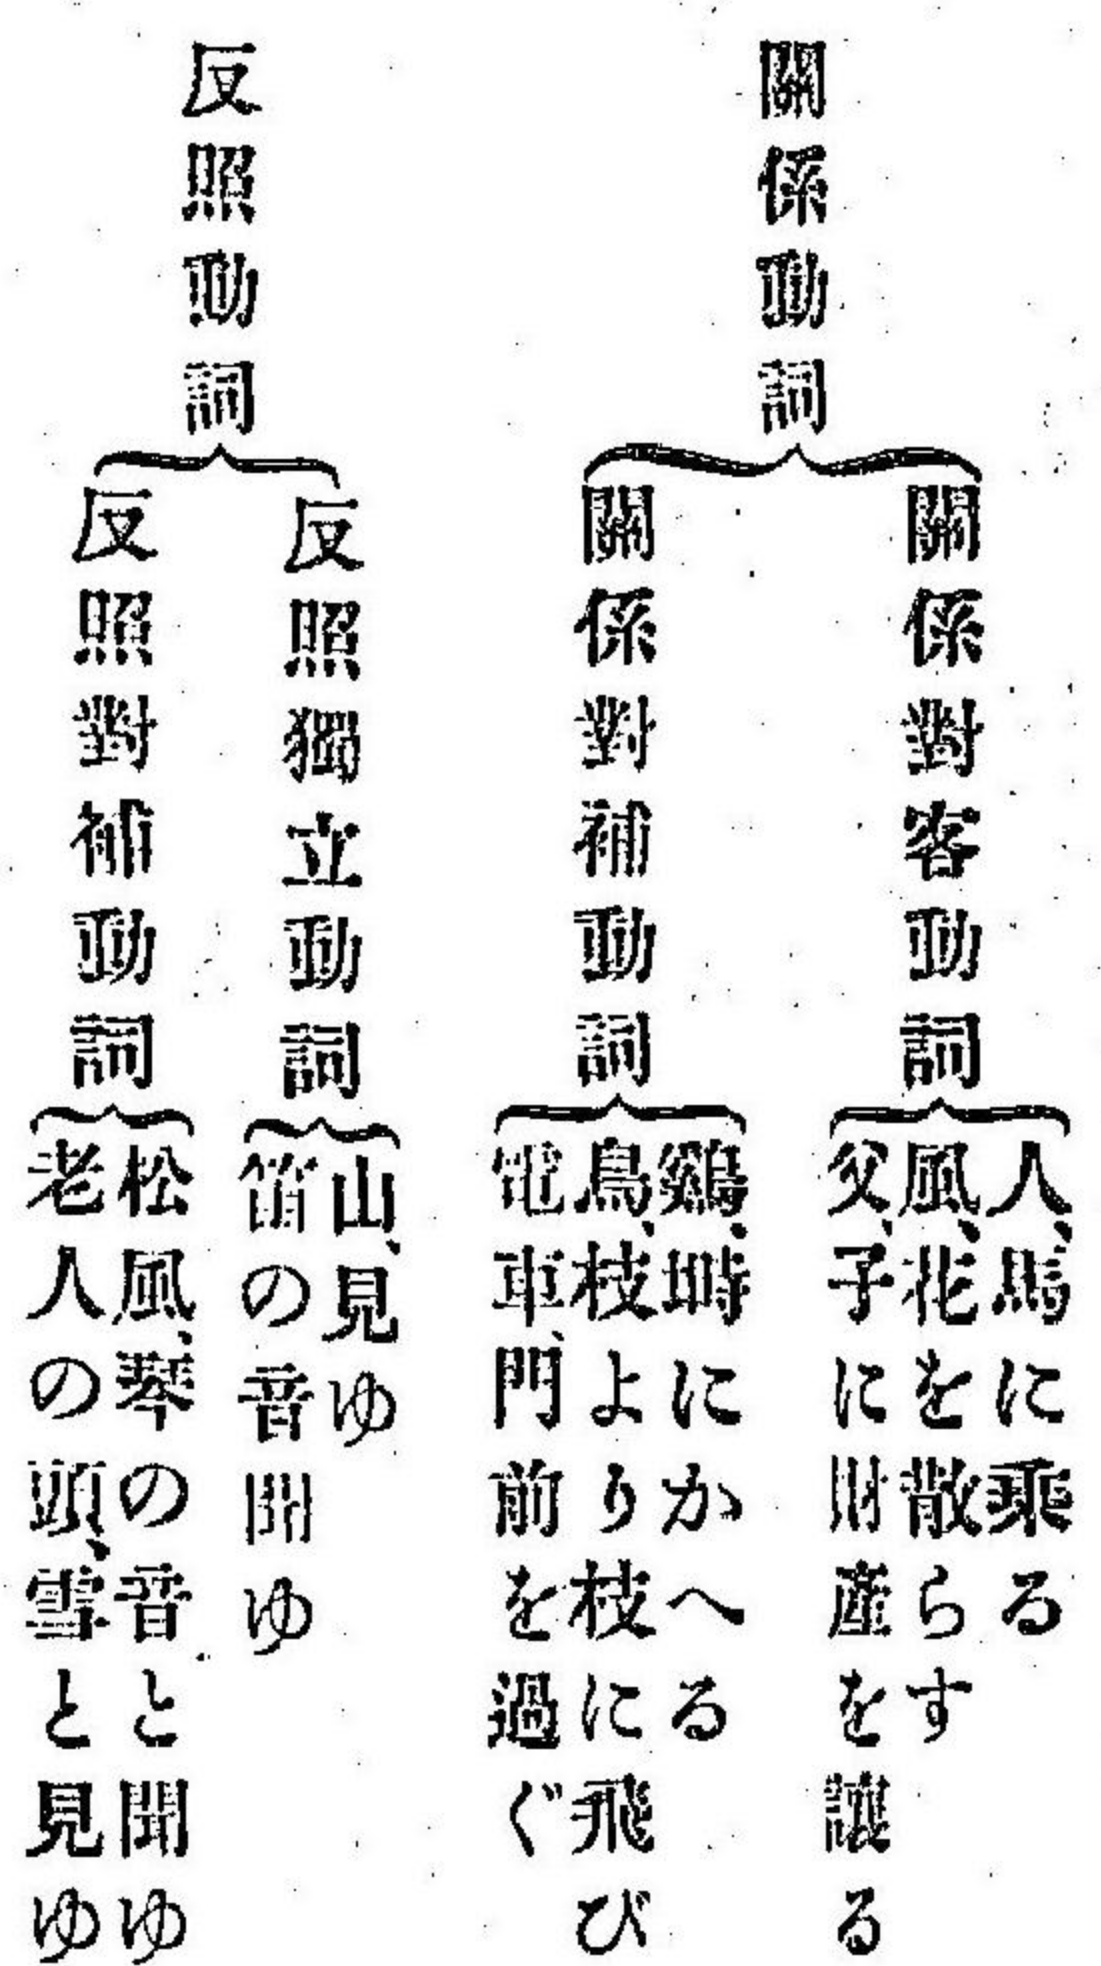 關係動詞
關係對客動詞
人、馬に乘る
風、花を散らす
父、子に財產を讓る
關係對補動詞
鷄、塒にかへる
鳥、枝より枝に飛び
電車、門前を過ぐ
反照動詞
反照獨立動詞
山、見ゆ
笛の音聞ゆ
反照對補動詞
松風、琴の音と聞ゆ
老人の頭、雪と見ゆ